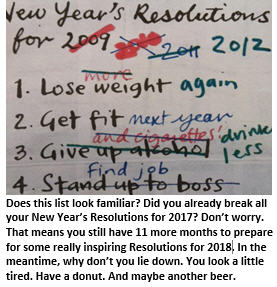 New Year's Resolutions
for 2009 2011 2012
more
1. Lose weight again
2. Get fit next year
and cigarettes! drink
3. Give up alcohol less
find job
4. Stand up to boss
Does this list look familiar? Did you already break all
your New Year's Resolutions for 2017? Don't worry.
That means you still have 11 more months to prepare
for some really inspiring Resolutions for 2018. In the
meantime, why don't you lie down. You look a little
tired. Have a donut. And maybe another beer.